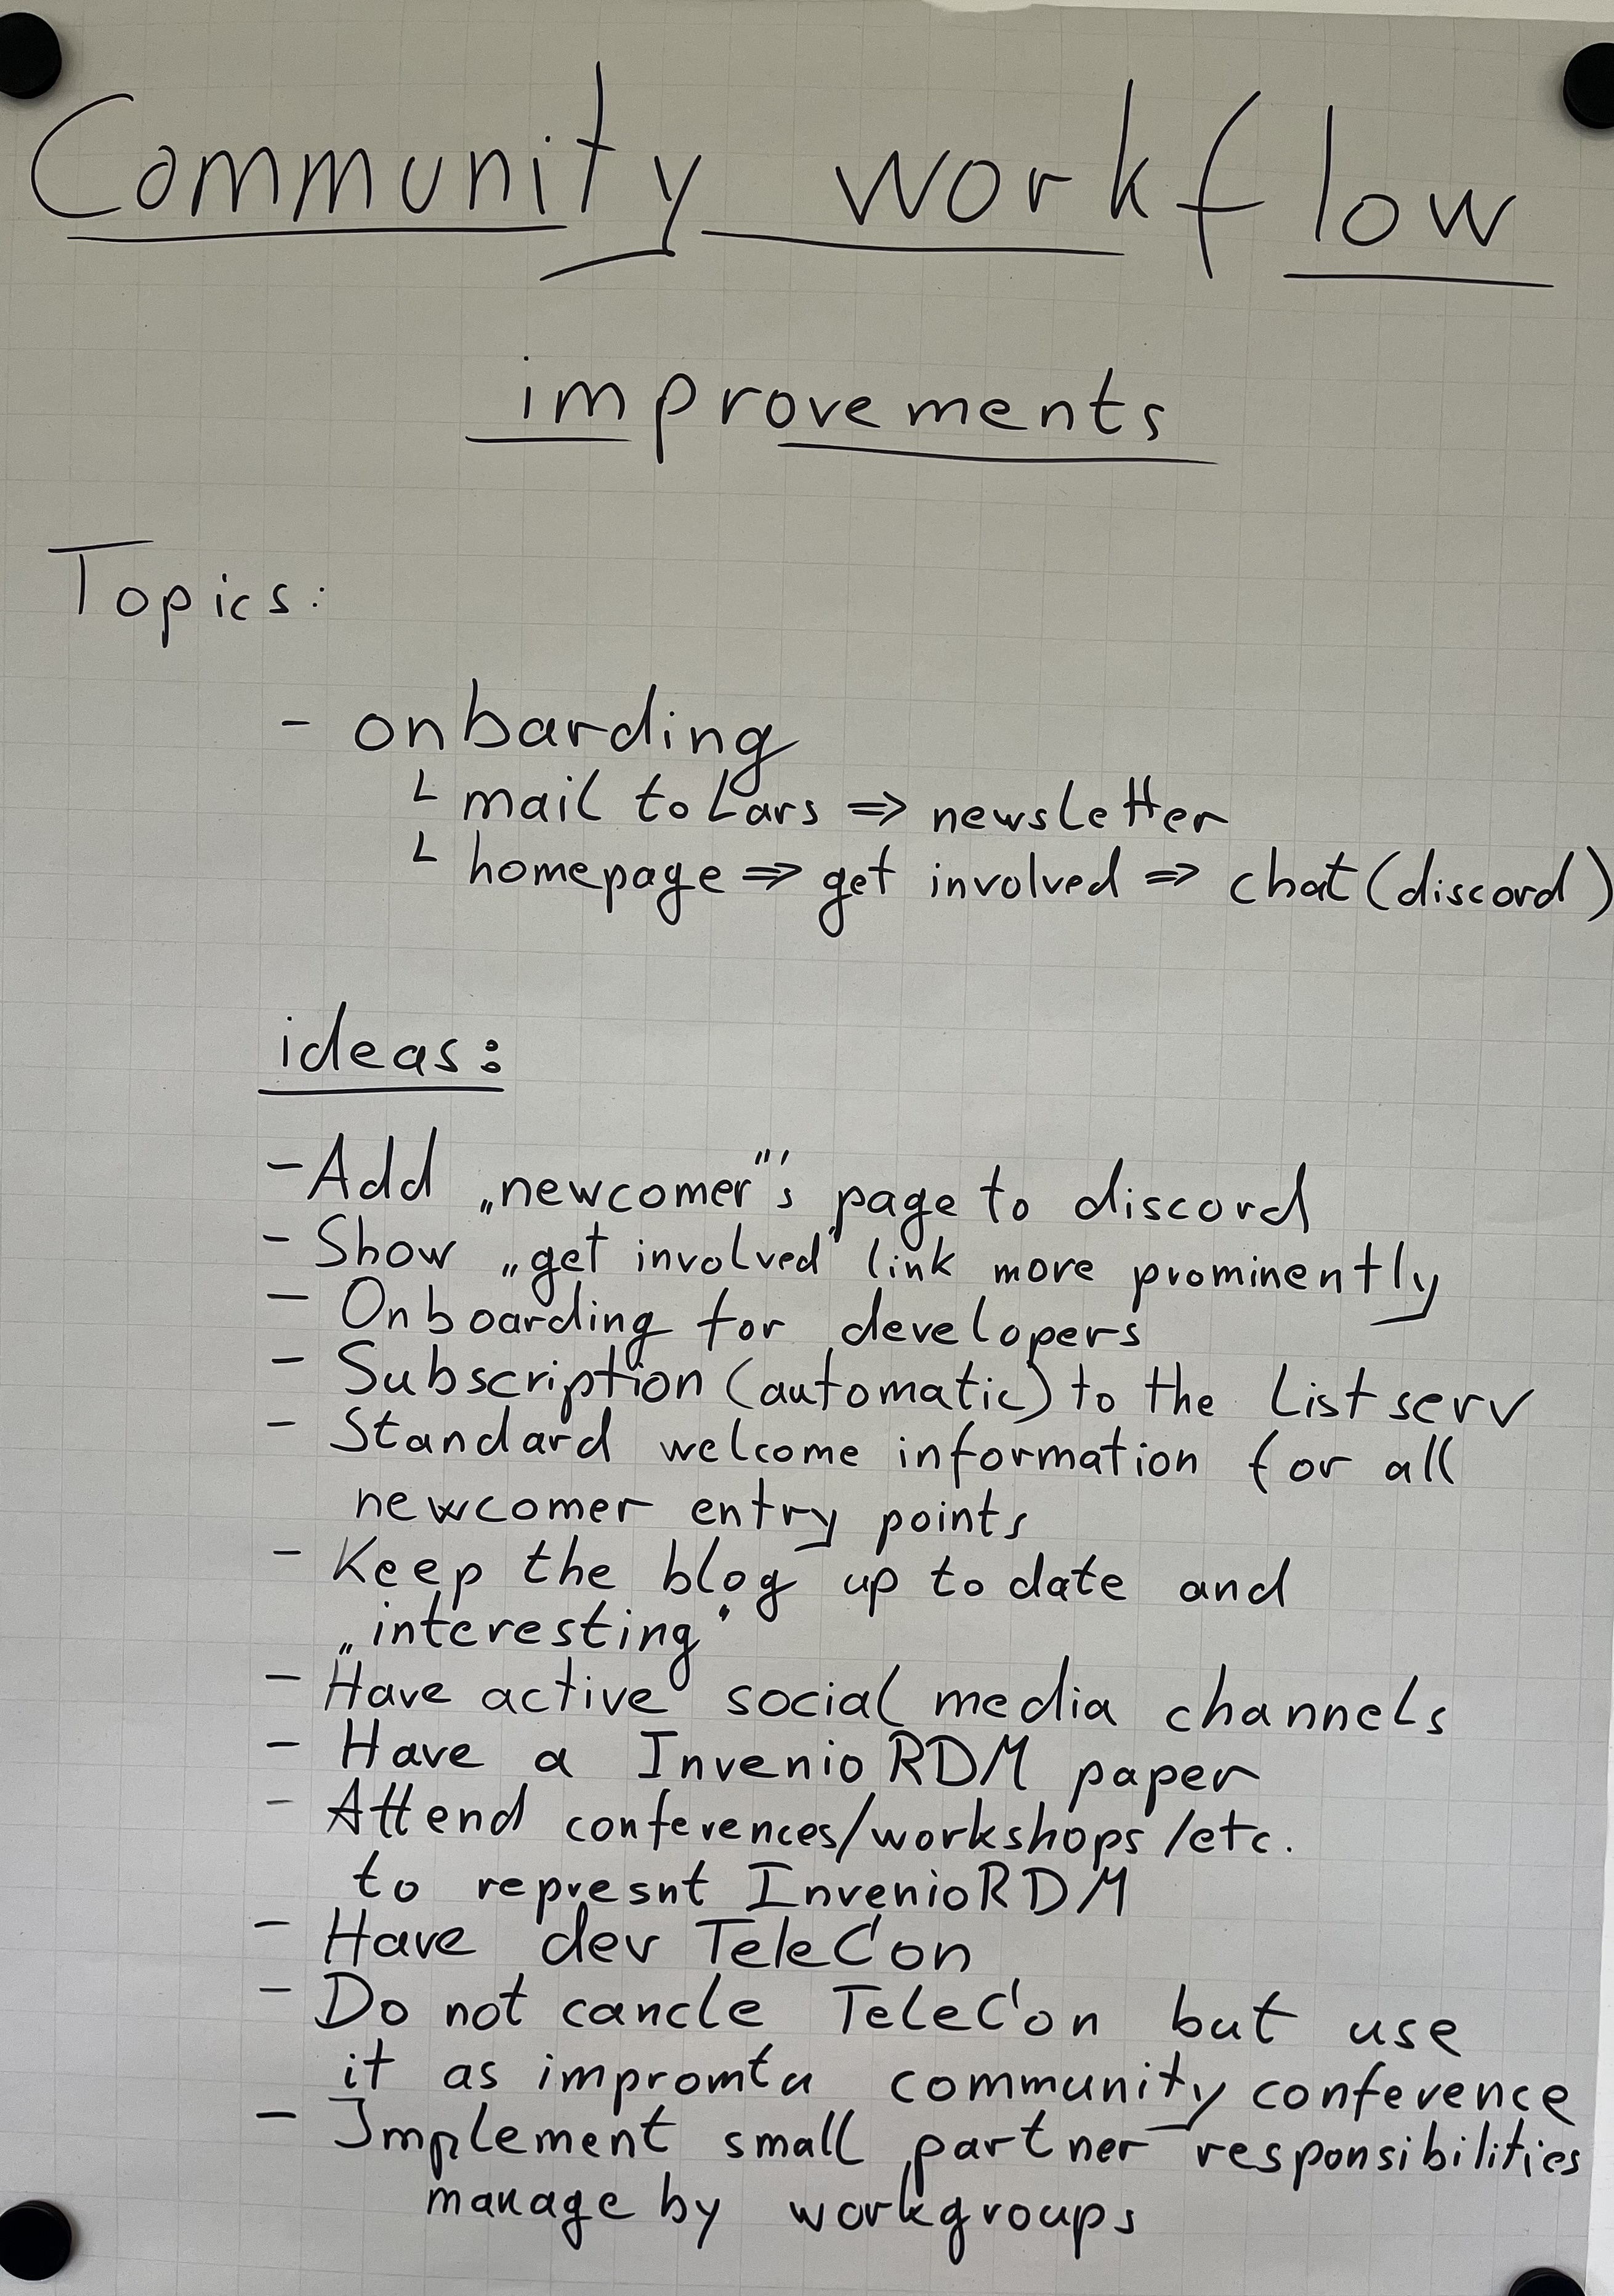 Community workflow
improvements
Topics:
- onbarding
└ mail to Lars => newsletter
└ homepage => get involved => chat (discord)
ideas:
- Add „newcomer"'s page to discord
- Show „get involved" link more prominently
- Onboarding for developers
- Subscription (automatic) to the Listserv
- Standard welcome information for all
newcomer entry points
- Keep the blog up to date and
„interesting"
- Have active social media channels
- Have a InvenioRDM paper
- Attend conferences/workshops/etc.
to represnt InvenioRDM
- Have dev TeleCon
- Do not cancle TeleCon but use
it as impromtu community conference
- Implement small partner responsibilities
manage by workgroups